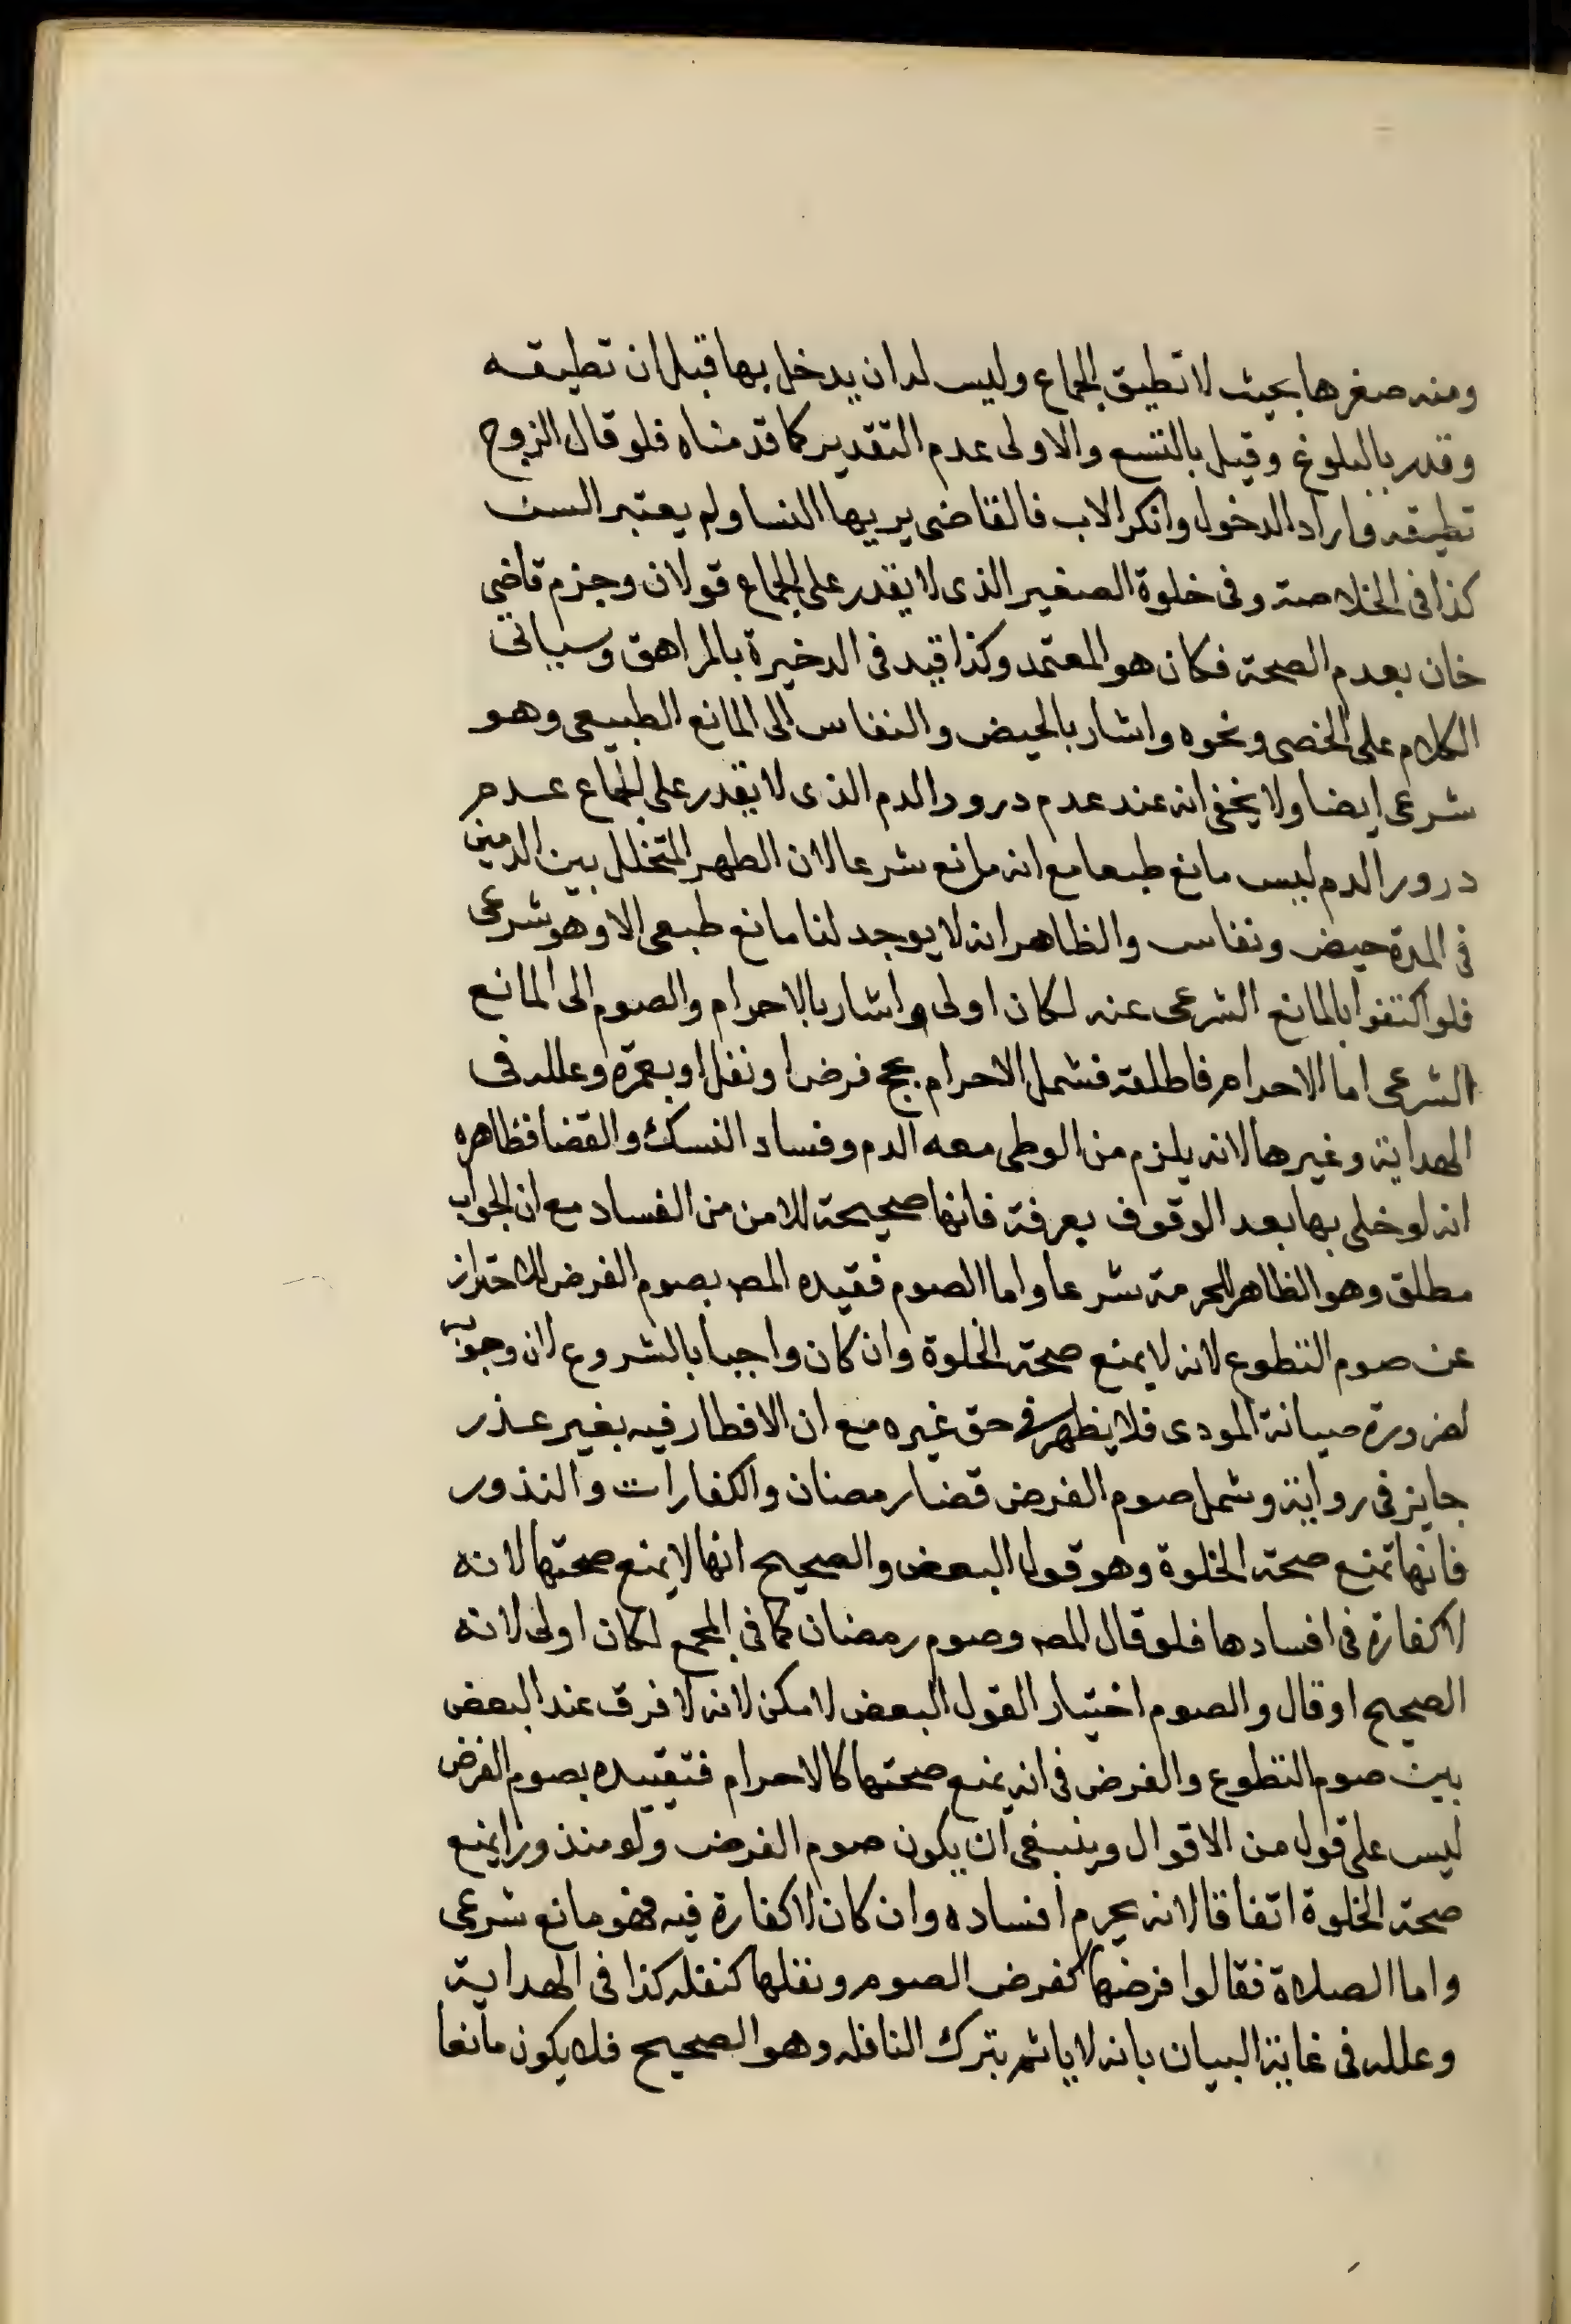 ومنه صغرها بحيث لا تطيق الجماع وليس له ان يدخل بها قبل ان تطيقه
وقدر بالبلوغ وقيل بالتسع والاولى عدم التقدير كما قدمناه فلو قال الزوج
تطيقه واراد الدخول وانكر الاب فالقاضى يريها النسا ولم يعتبر السن
كذا فى الخلاصة وفى خلوة الصغير الذى لا يقدر على الجماع قولان وجزم قاضى
خان بعدم الصحة فكان هو المعتمد وكذا قيد فى الدخيرة بالمراهق وسياتى
الكلام على الخصى ونحوه واشار بالحيض والنفاس الى المانع الطبيعى وهو
شرعى ايضا ولا يخفى انه عند عدم درور الدم الذى لا يقدر على الجماع عدم
درور الدم ليس مانع طبعا مع انه مانع شرعا لان الطهر المتخلل بين الدمين
فى المدة حيض ونفاس والظاهر انه لا يوجد لنا مانع طبعى الا وهو شرعى
فلو اكتفوا بالمانع الشرعى عنه لكان اولى واشار بالاحرام والصوم الى المانع
الشرعى اما الاحرام فاطلقه فشمل الاحرام بحج فرضا ونفل او بعمرة وعلله فى
الهداية وغيرها لانه يلزم من الوطى معه الدم وفساد النسك والقضا فظاهره
انه لو خلى بها بعد الوقوف بعرفة فانها صحيحة للامن من الفساد مع ان الجواب
مطلق وهو الظاهر للحرمة شرعا واما الصوم فقيده المصـ بصوم الفرض للاحتراز
عن صوم التطوع لانه لا يمنع صحة الخلوة وان كان واجبا بالشروع لان وجوبه
لضرورة صيانة المودى فلا يظهر فى حق غيره مع ان الافطار فيه بغير عذر
جايز فى رواية وشمل صوم الفرض قضا رمضان والكفارات والنذور
فانها تمنع صحة الخلوة وهو قول البعض والصحيح انها لا يمنع صحتها لانه
لا كفارة فى افسادها فلو قال المصـ وصوم رمضان كما فى المجمع لكان اولى لانه
الصحيح او قال والصوم اختيار القول البعض لامكن لانه لا فرق عند البعض
بين صوم التطوع والفرض فى انه يمنع صحتها كالاحرام فتقييده بصوم الفرض
ليس على قول من الاقوال وينبغى ان يكون صوم الفرض ولو منذورا يمنع
صحة الخلوة اتفاقا لانه يحرم افساده وان كان لا كفارة فيه فهو مانع شرعى
واما الصلاة فقالوا فرضها كفرض الصوم ونفلها كنفله كذا فى الهداية
وعلله فى غاية البيان بانه لا ياثم بترك النافله وهو الصحيح فلا يكون مانعا